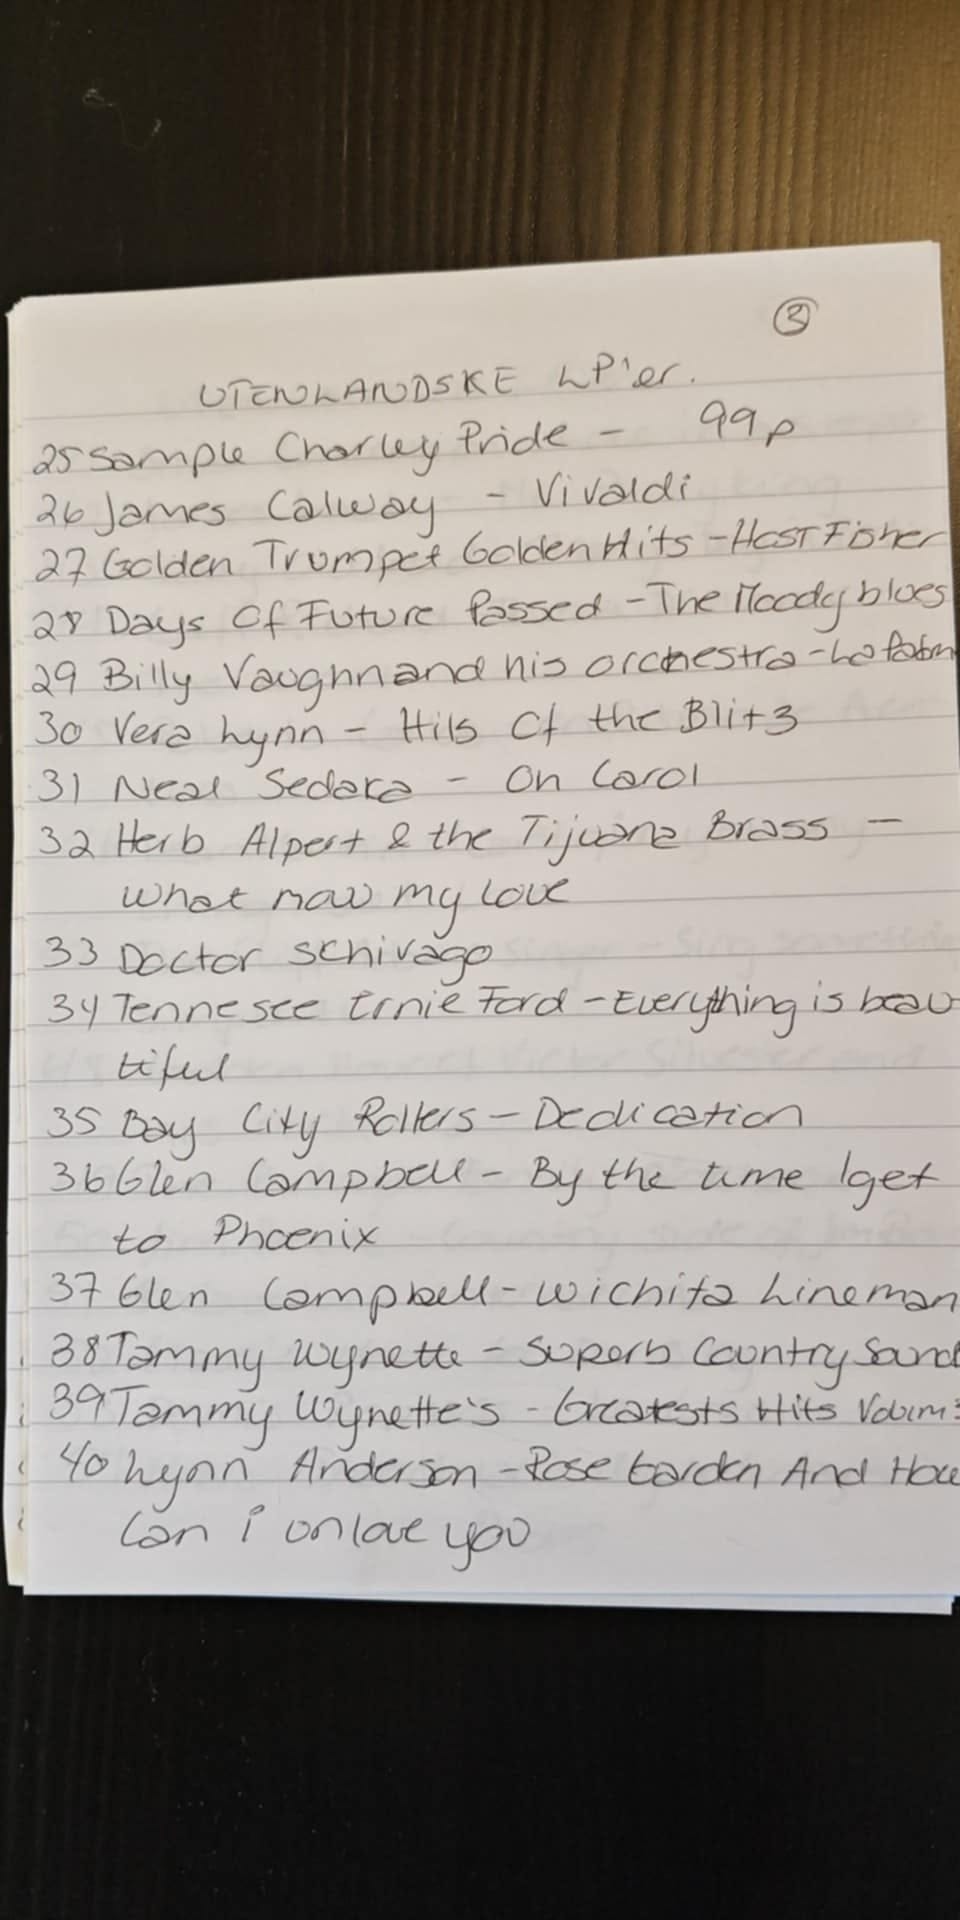 3
UTENLANDSKE LP'er.
25 Sample Charley Pride - 99p
26 James Calway - Vivaldi
27 Golden Trumpet Golden Hits - Host Fisher
28 Days Of Future Passed - The Moody blues
29 Billy Vaughn and his orchestra - La
30 Vera Lynn - Hits Of the Blitz
31 Neal Sedaka - On Carol
32 Herb Alpert & the Tijuana Brass -
What now my Love
33 Doctor Schivago
34 Tennesee Ernie Ford - Everything is beau
tiful
35 Bay City Rollers - Dedication
36 Glen Campbell - By the time I get
to Phoenix
37 Glen Campbell - Wichita Lineman
38 Tammy Wynette - Superb Country Sound
39 Tammy Wynette's - Greatests Hits
40 Lynn Anderson - Rose Garden And How
Can i unlove you